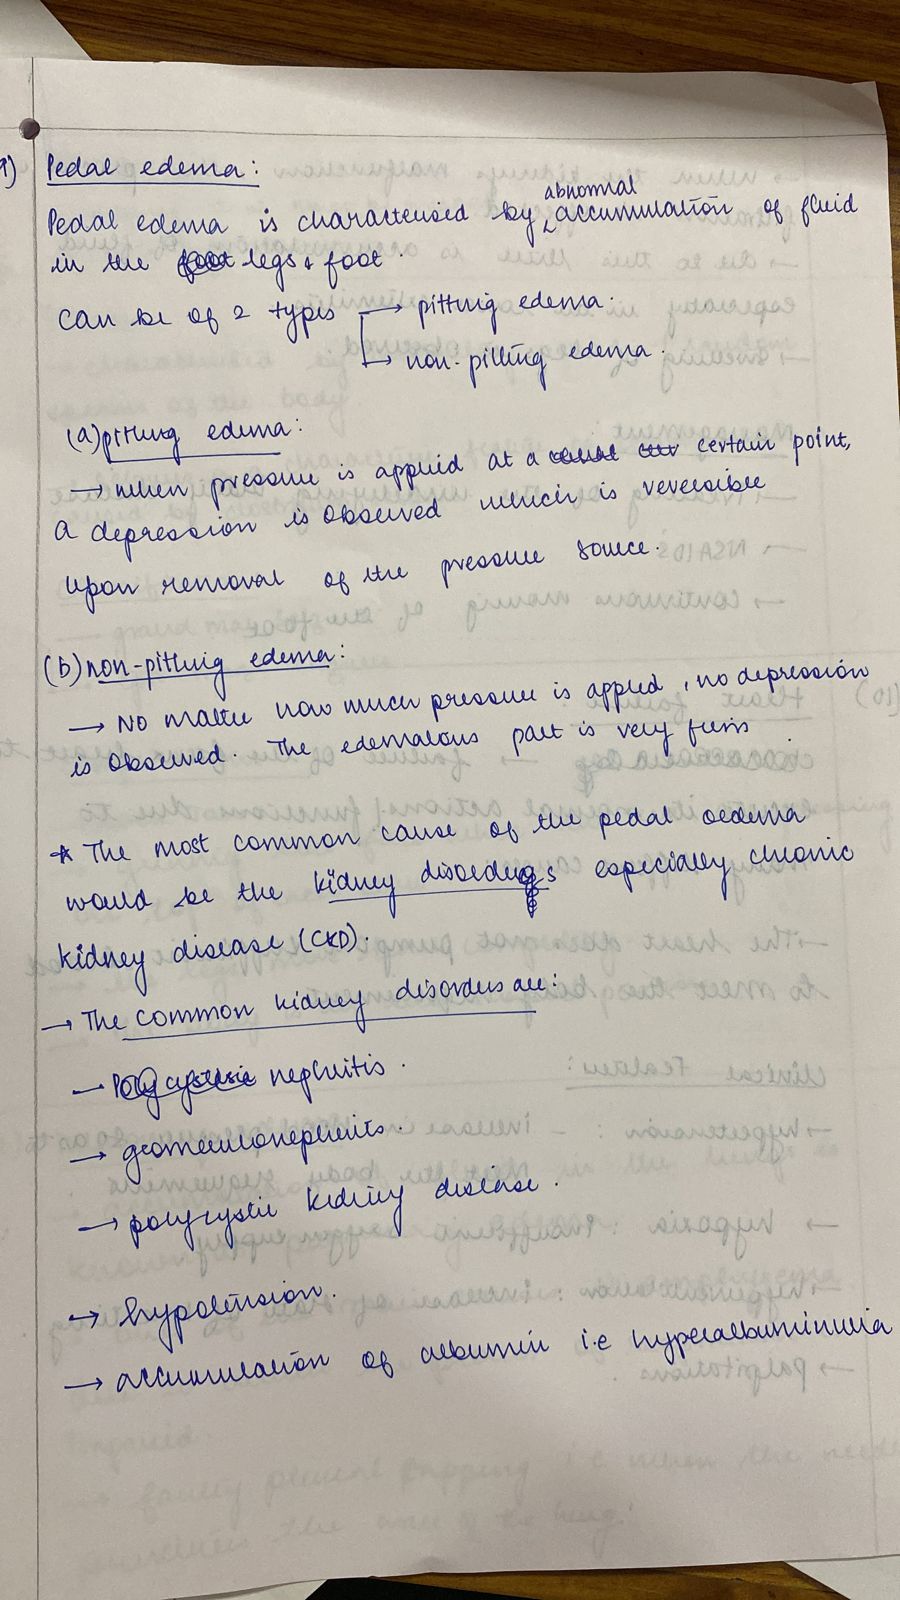 9) Pedal edema:
Pedal edema is characterised by abnormal accumulation of fluid
in the legs & foot.
Can be of 2 types → pitting edema.
→ non-pitting edema.
(a) pitting edema:
→ when pressure is applied at a certain point,
a depression is observed which is reversible
upon removal of the pressure source.
(b) non-pitting edema:
→ No matter how much pressure is applied, no depression
is observed. The edematous part is very firm.
* The most common cause of the pedal oedema
would be the kidney disorders especially chronic
kidney disease (CKD).
→ The common kidney disorders are:
→ nephritis.
→ glomerulonephritis.
→ polycystic kidney disease.
→ hypotension.
→ accumulation of albumin i.e hyperalbuminuria